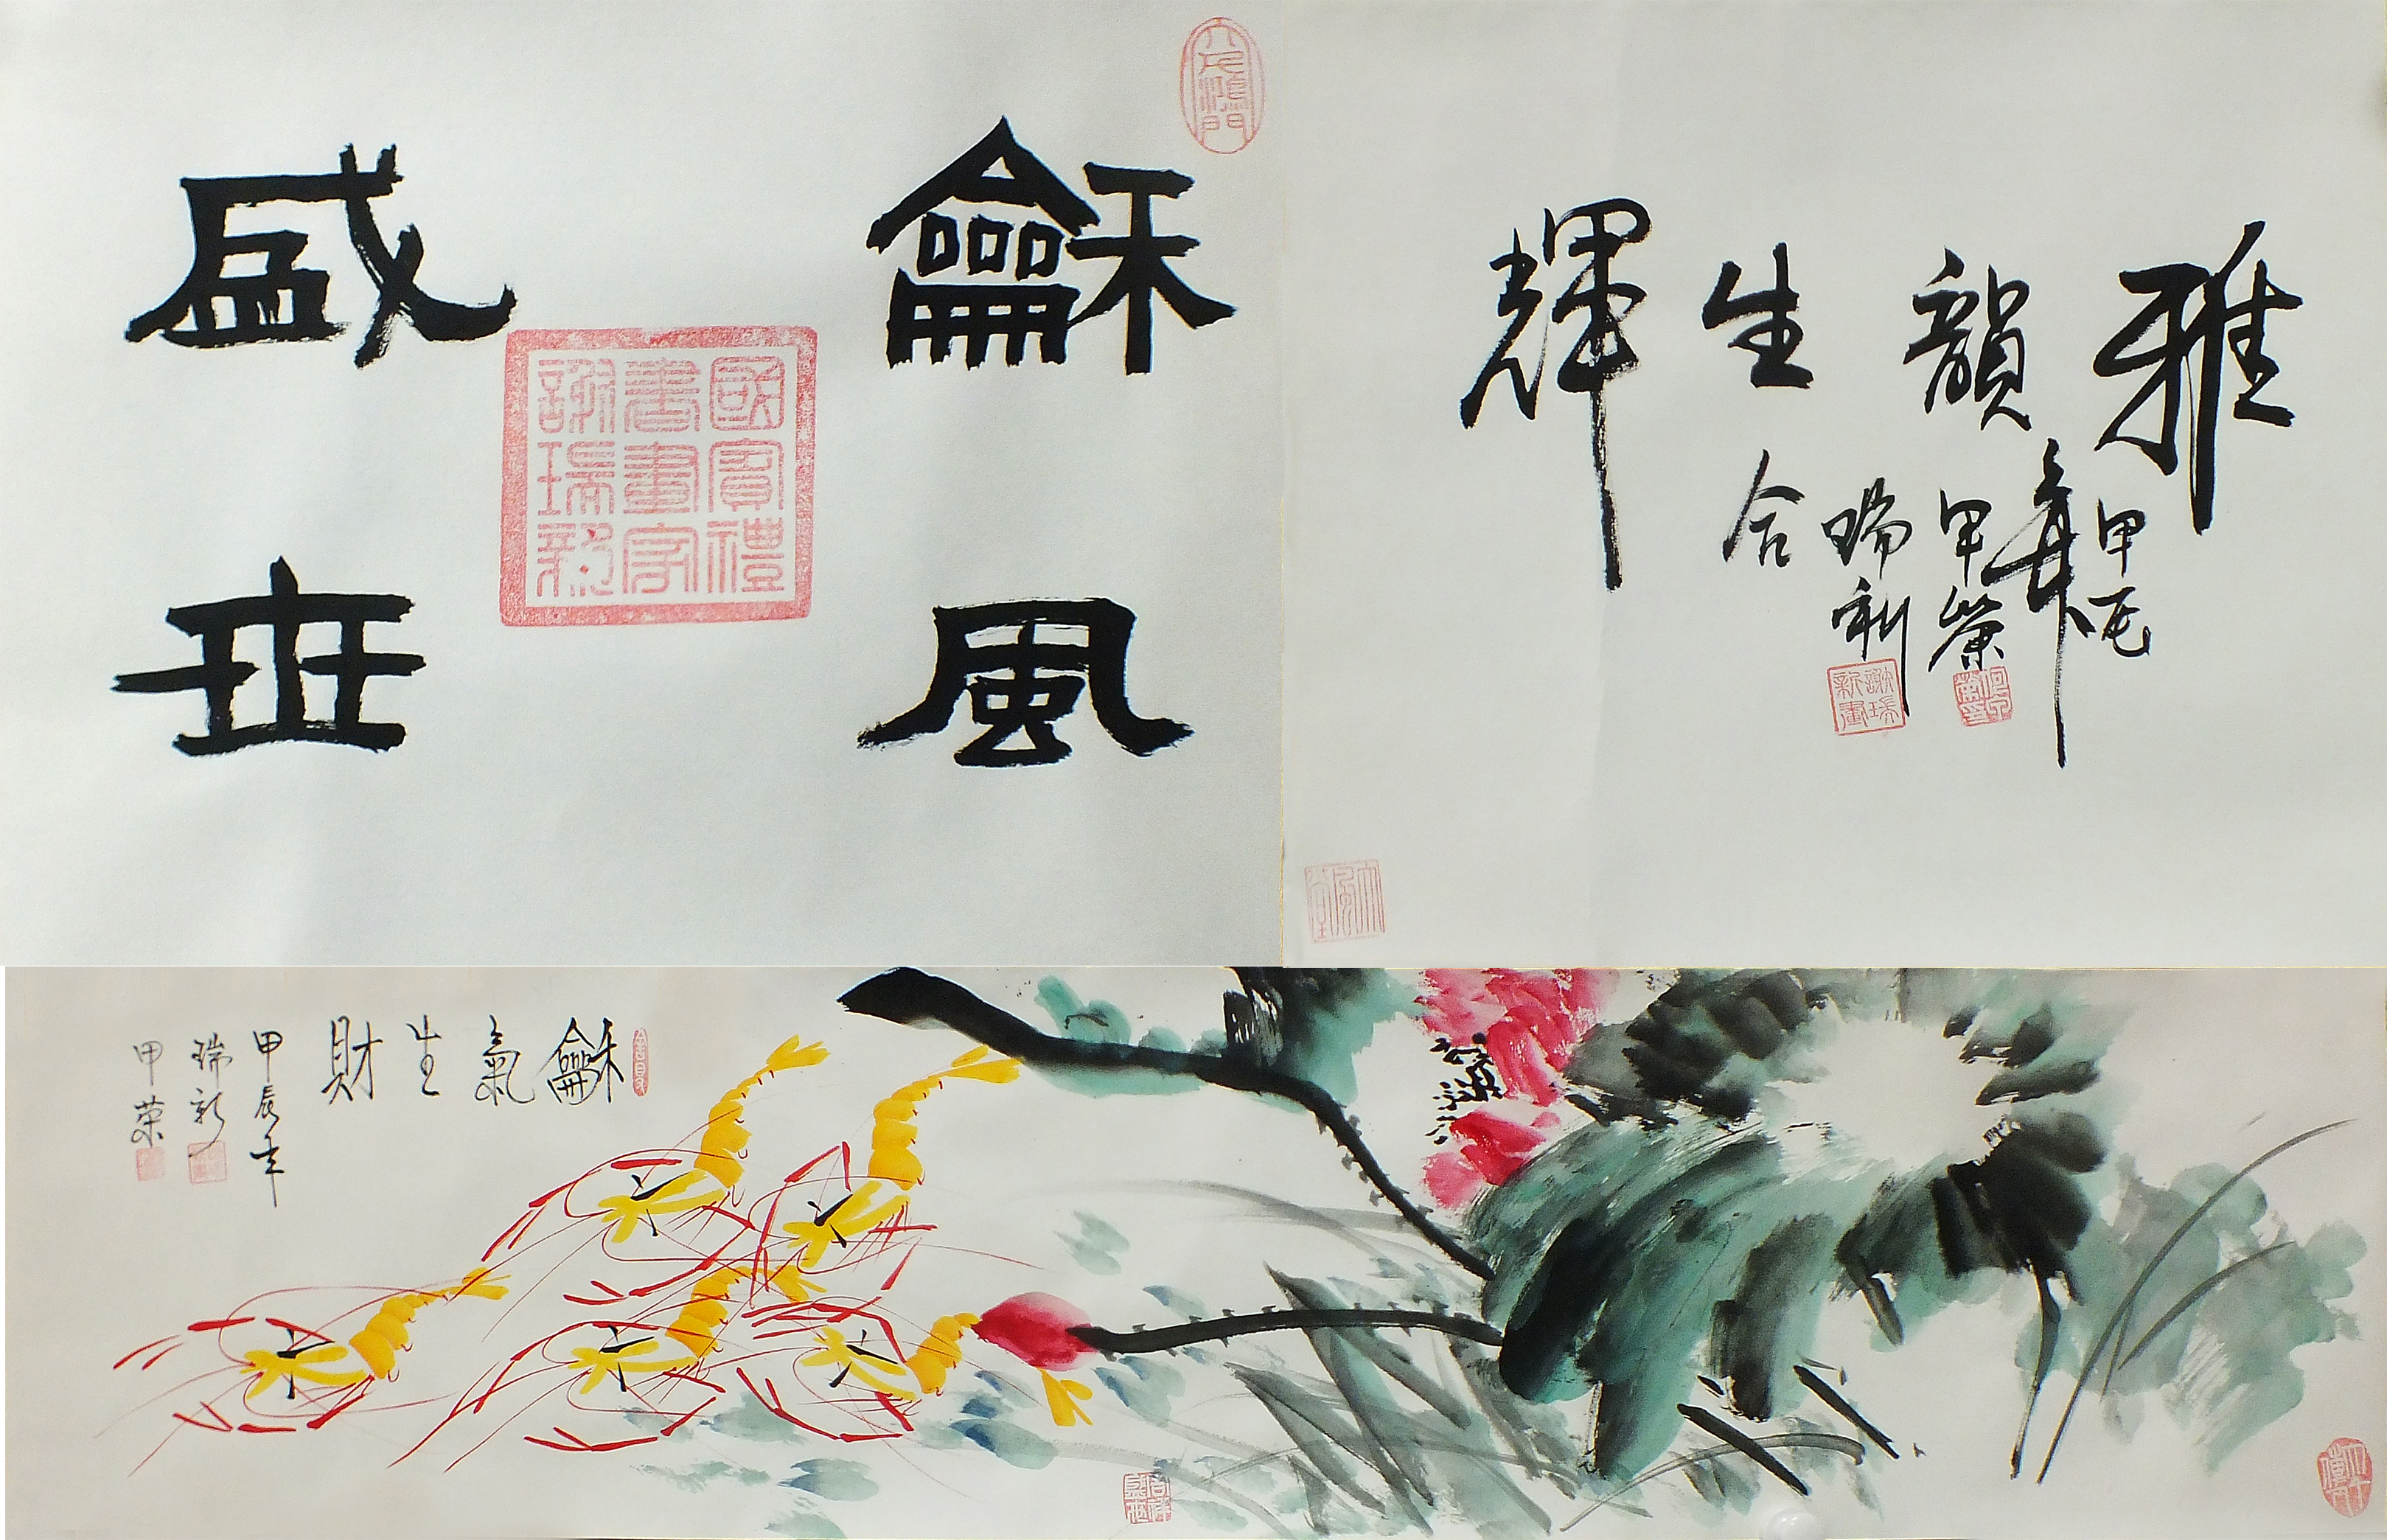 龢風
盛世
國賓禮
書畫家
謝瑞新
雅韻生輝
甲辰年
甲榮
瑞新
合
謝瑞新畫
龢氣生財
甲辰年
瑞新
甲榮